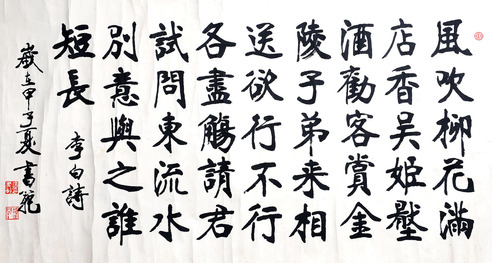 風吹柳花滿
店香吳姬壓
酒勸客賞金
陵子弟來相
送欲行不行
各盡觴請君
試問東流水
別意與之誰
短長 李白詩
歲在甲子夏 書